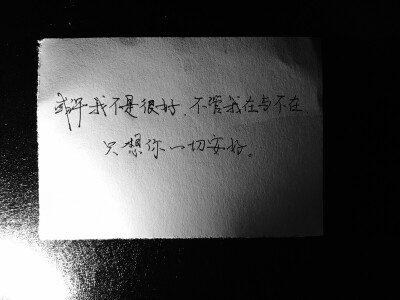 或许我不是很好，不管我在与不在
只想你一切安好。